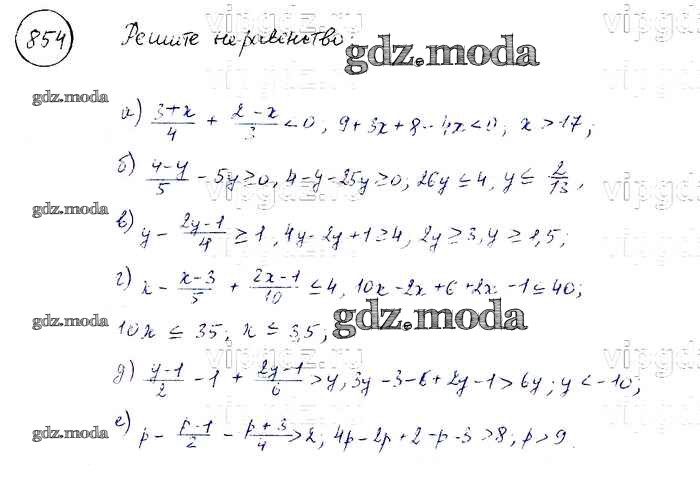 854 Решите неравенство:
gdz.moda
gdz.moda
а) (3+x)/4 + (2-x)/3 < 0, 9+3x+8-4x<0; x > 17;
б) (4-y)/5 - 5y ≥ 0, 4-y-25y ≥ 0; 26y ≤ 4, y ≤ 2/13,
gdz.moda
в) y - (2y-1)/4 ≥ 1, 4y-2y+1 ≥ 4, 2y ≥ 3, y ≥ 1,5;
г) x - (x-3)/5 + (2x-1)/10 ≤ 4, 10x-2x+6+2x-1 ≤ 40;
gdz.moda
10x ≤ 35; x ≤ 3,5;
gdz.moda
д) (y-1)/2 - 1 + (2y-1)/6 > y, 3y-3-6+2y-1 > 6y; y < -10;
е) p - (p-1)/2 - (p+3)/4 > 2; 4p-2p+2-p-3 > 8; p > 9.
gdz.moda
vipgdz.ru
vipgdz.ru